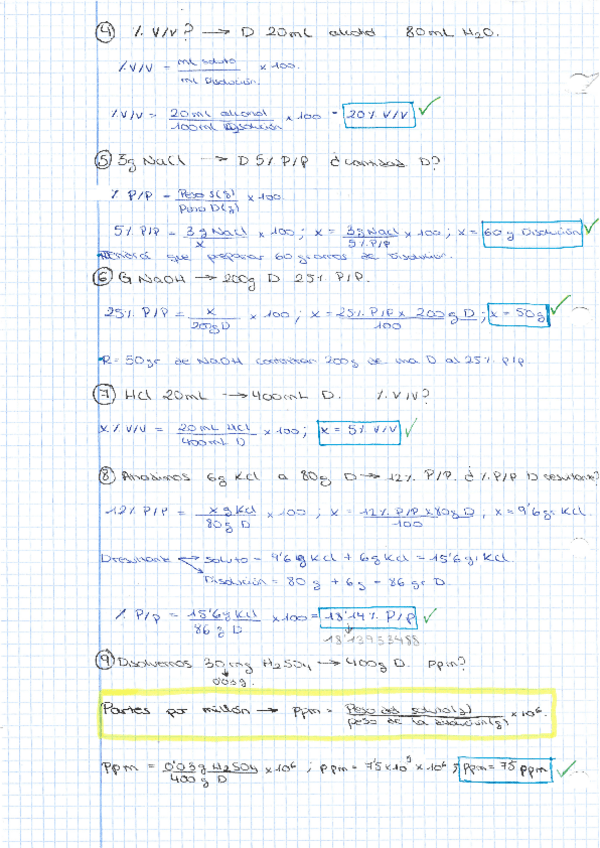 ④ % V/V? → D 20mL alcohol 80mL H2O.
% V/V = mL soluto / mL Disolución × 100.
% V/V = 20mL alcohol / 100mL Disolución × 100 = 20% V/V ✓
⑤ 3g NaCl → D 5% P/P ¿cantidad D?
% P/P = Peso S(g) / Peso D(g) × 100
5% P/P = 3g NaCl / x × 100; x = 3g NaCl / 5% P/P × 100; x = 60g Disolución ✓
que preparar 60 gramos de Disolución.
⑥ G NaOH → 200g D 25% P/P.
25% P/P = x / 200g D × 100; x = 25% P/P × 200g D / 100; x = 50g ✓
R = 50gr de NaOH contendrán 200g de una D al 25% P/P
⑦ HCl 20mL → 400mL D. % V/V?
x % V/V = 20mL HCl / 400mL D × 100; x = 5% V/V ✓
⑧ Añadimos 6g KCl a 80g D → 12% P/P. ¿% P/P D resultante?
12% P/P = x g KCl / 80g D × 100; x = 12% P/P × 80g D / 100, x = 9'6gr KCl.
Dresultante soluto = 9'6g KCl + 6g KCl = 15'6gr KCl.
Disolución = 80g + 6g = 86gr D.
% P/P = 15'6g KCl / 86g D × 100 = 18'14% P/P ✓
18'13953488
⑨ Disolvemos 30mg H2SO4 → 400g D. ppm?
0'03g.
Partes por millón → ppm = Peso del soluto(g) / peso de la disolución(g) × 10⁶.
ppm = 0'03g H2SO4 / 400g D × 10⁶; ppm = × 10⁶; ppm = 75 ppm ✓